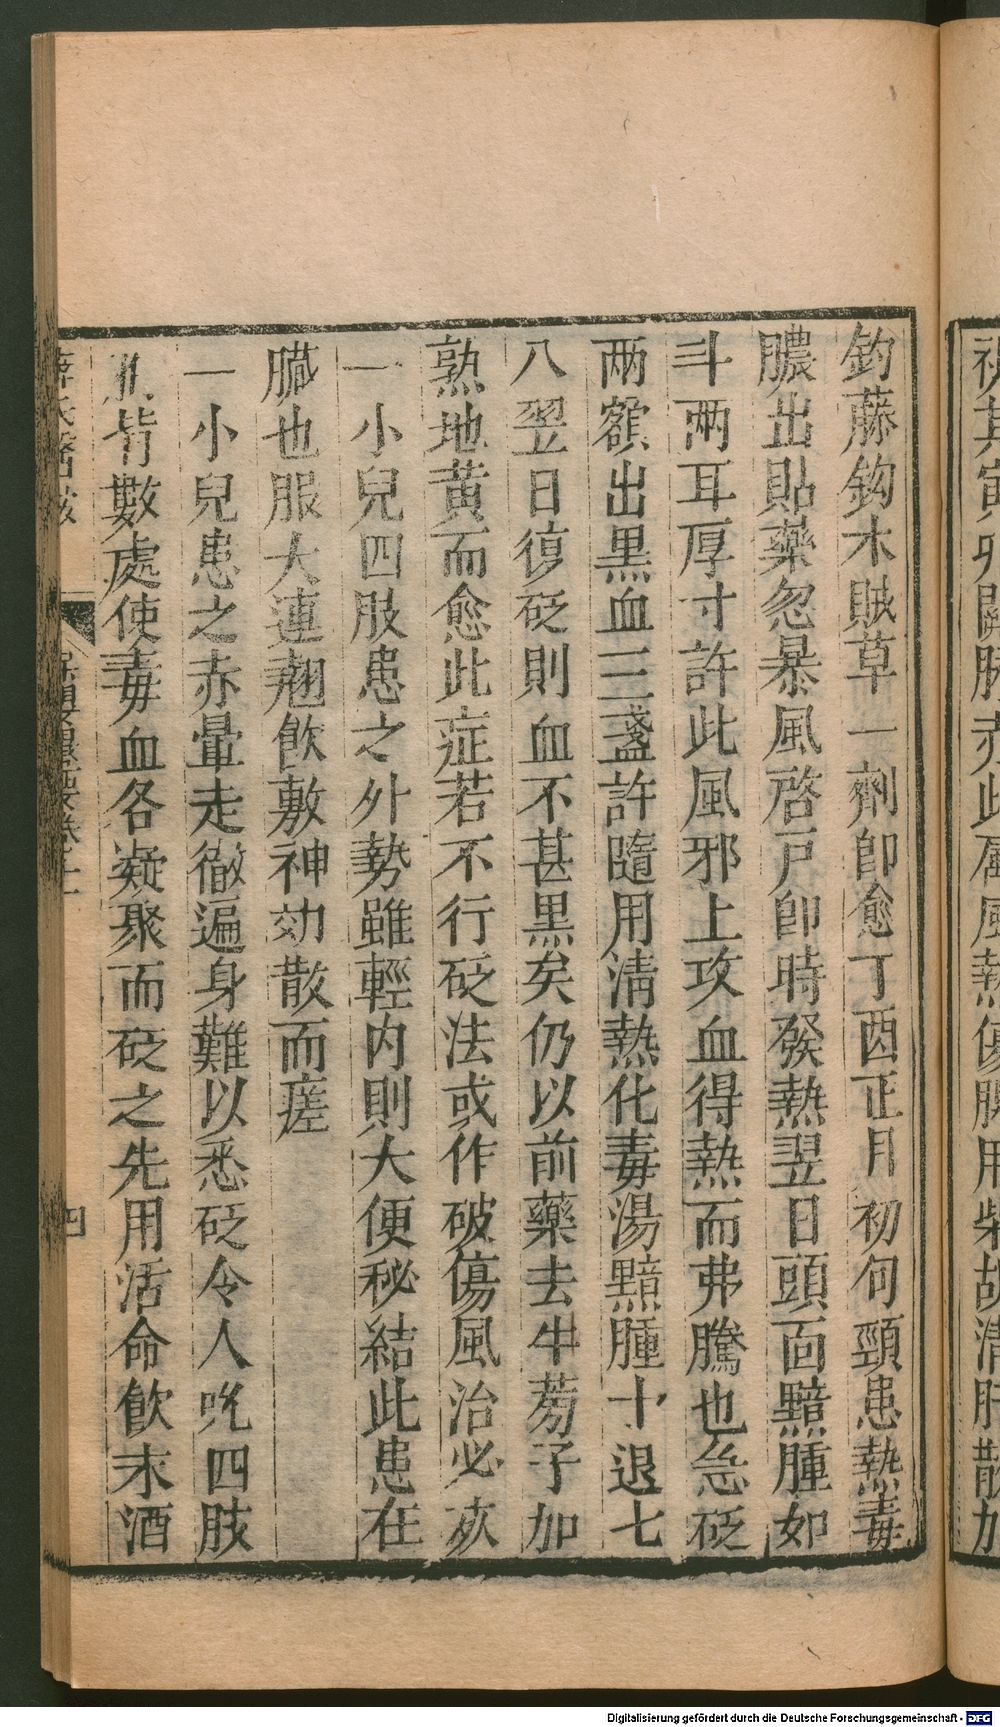 鈞藤鈎木賊草一劑即愈丁酉正月初旬頸患熱毒
膿出貼藥忽暴風啓戸即時發熱翌日頭面黯腫如
斗兩耳厚寸許此風邪上攻血得熱而弗騰也急砭
两額出黒血三盞許隨用清熱化毒湯黯腫十退七
八翌日復砭則血不甚黒矣仍以前藥去牛蒡子加
熟地黄而愈此症若不行砭法或作破傷風治必疚
一小兒四肢患之外勢雖輕内則大便秘結此患在
臓也服大連翹飲敷神効散而瘥
一小兒患之赤暈走徹遍身難以悉砭令人吮四肢
背數處使毒血各凝聚而砭之先用活命飲末酒
四
視其寅夘關脉赤此屬風熱傷脾用柴胡清肝散加
Digitalisierung gefördert durch die Deutsche Forschungsgemeinschaft - DFG